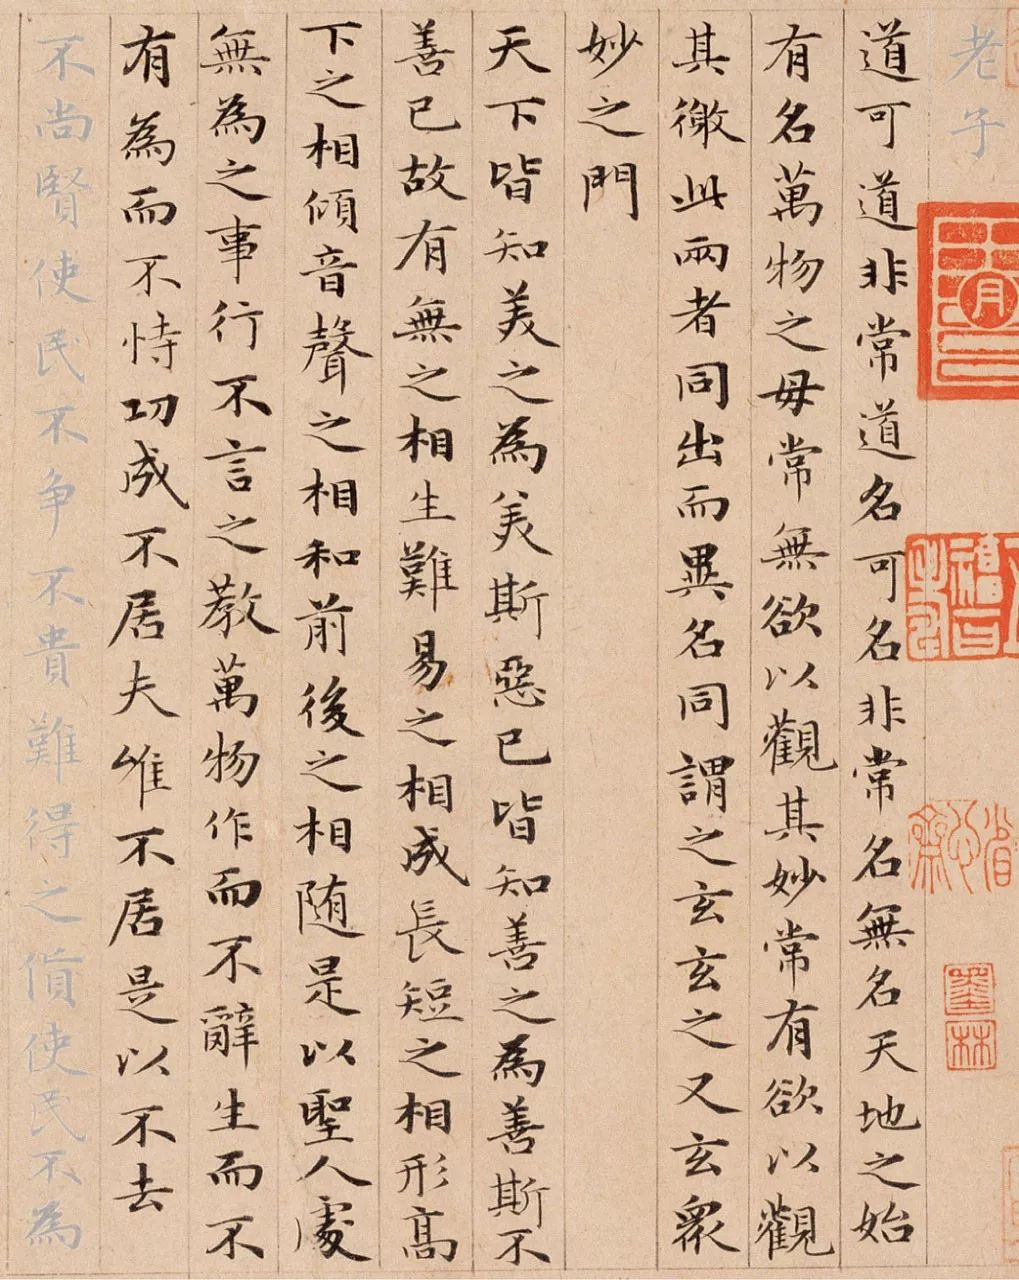 老子
道可道非常道名可名非常名無名天地之始
有名萬物之毋常無欲以觀其妙常有欲以觀
其徼此兩者同出而異名同謂之玄玄之又玄衆
妙之門
天下皆知美之為美斯惡已皆知善之為善斯不
善已故有無之相生難易之相成長短之相形高
下之相傾音聲之相和前後之相随是以聖人處
無為之事行不言之教萬物作而不辭生而不
有為而不恃功成不居夫惟不居是以不去
不尚賢使民不争不貴難得之貨使民不為
墨林